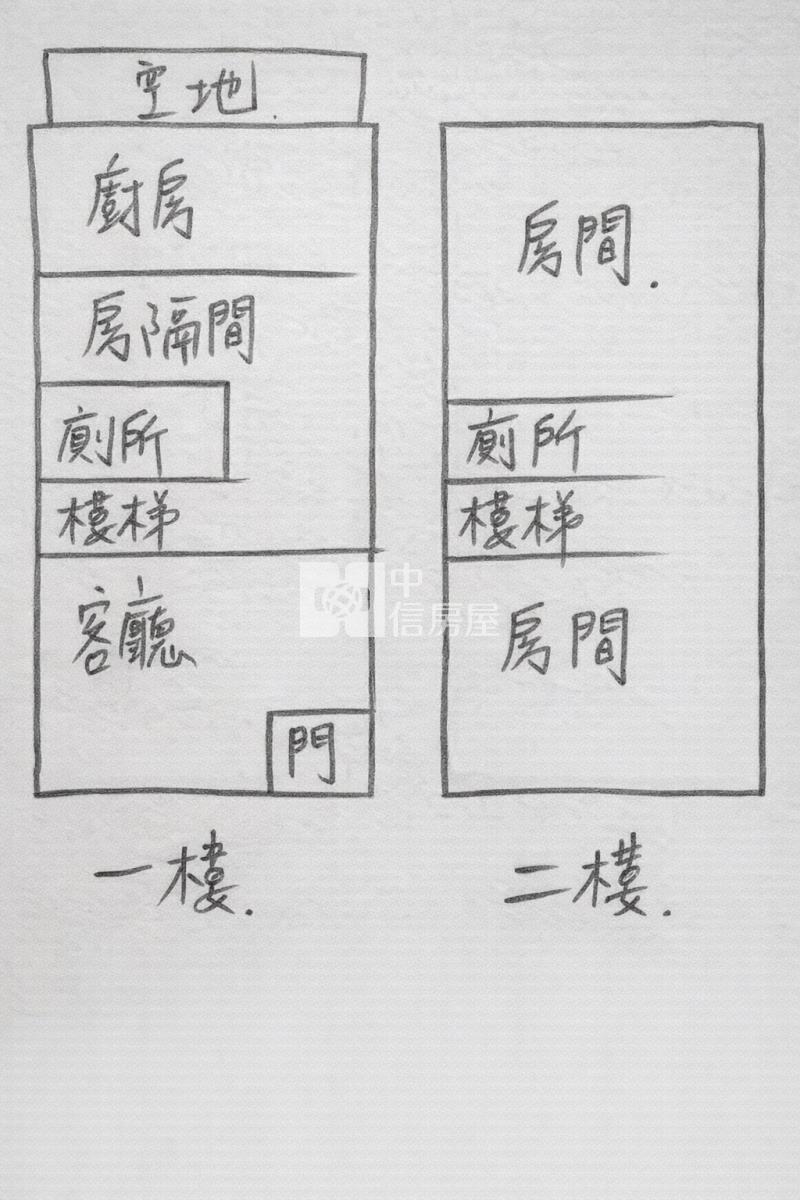 空地.
廚房
房隔間
廁所
樓梯
客廳
門
一樓.
房間.
廁所
樓梯
房間
二樓.
中信房屋